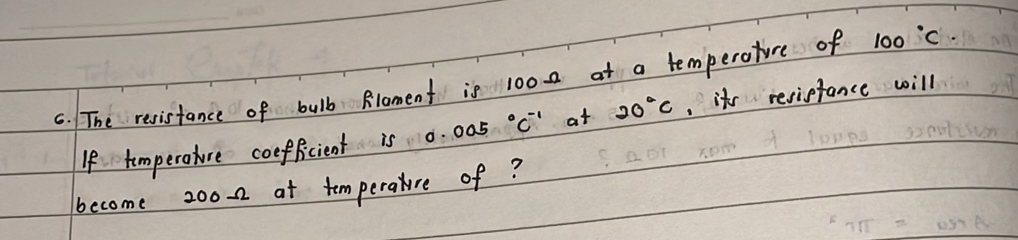 6. The resistance of bulb filament is 100Ω at a temperature of 100 °C.
If temperature coefficient is 0.005 °C⁻¹ at 20°C, its resistance will
become 200Ω at temperature of ?